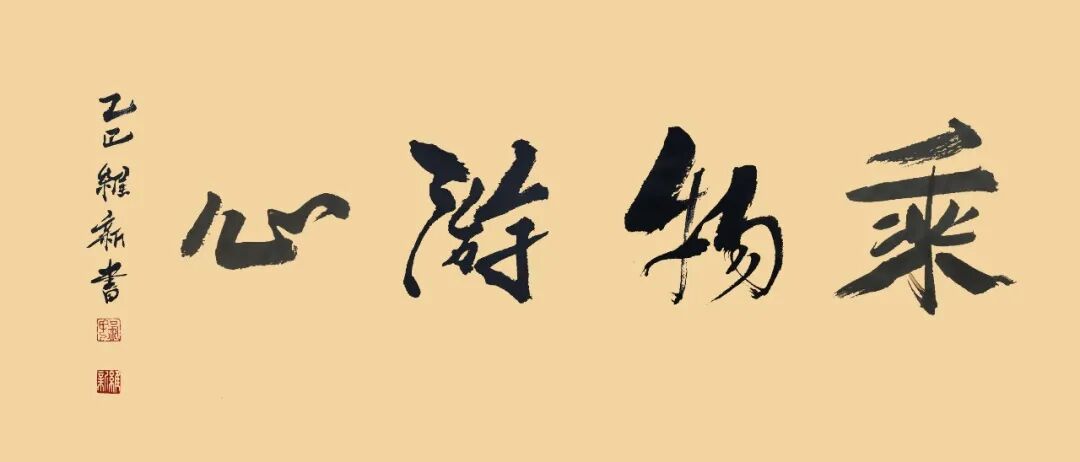 乘物游心
乙巳維新書
維新